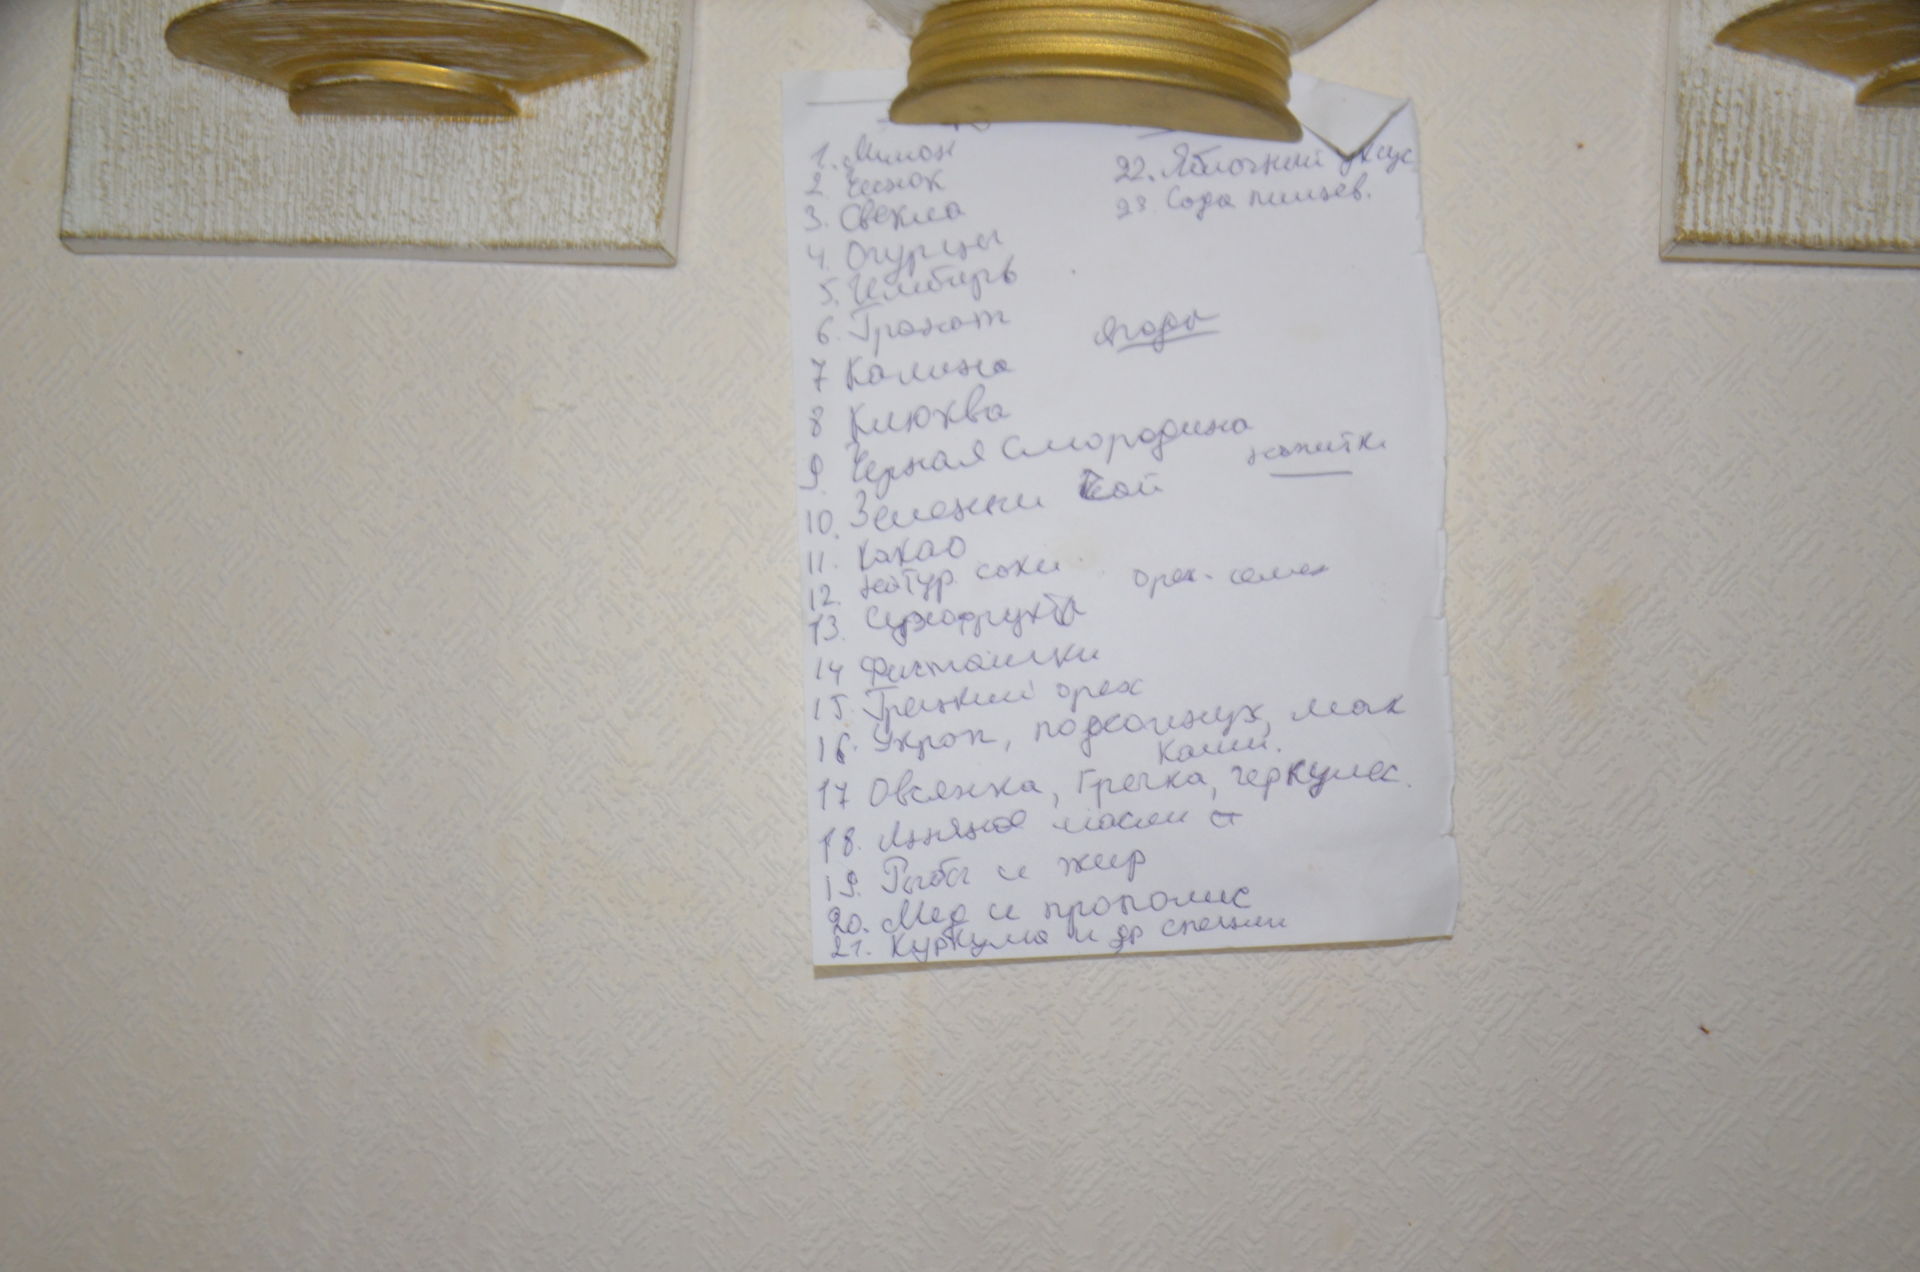 1. Лимон
2. Чеснок
3. Свекла
4. Огурцы
5. Имбирь
6. Гранат
Ягоды
7 Калина
8 Клюква
9. Черная Смородина
напитки
10. Зелены чай
11. Какао
12. натур соки
орех. семеч
13. Сухофрукты
14 Фисташки
15. Грецкий орех
16. Укроп, подсолнух, мак
Каши.
17 Овсянка, Гречка, геркулес.
18. Льняное масли
19. Рыба и жир
20. Мед и прополис
21. Куркума и др специи
22. Яблочный уксус
23. Сода пищев.